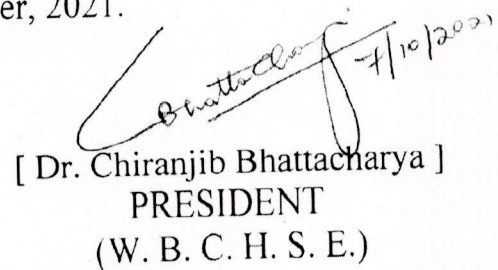 er, 2021.
Bhattacharya 7/10/2021
[ Dr. Chiranjib Bhattacharya ]
PRESIDENT
(W. B. C. H. S. E.)